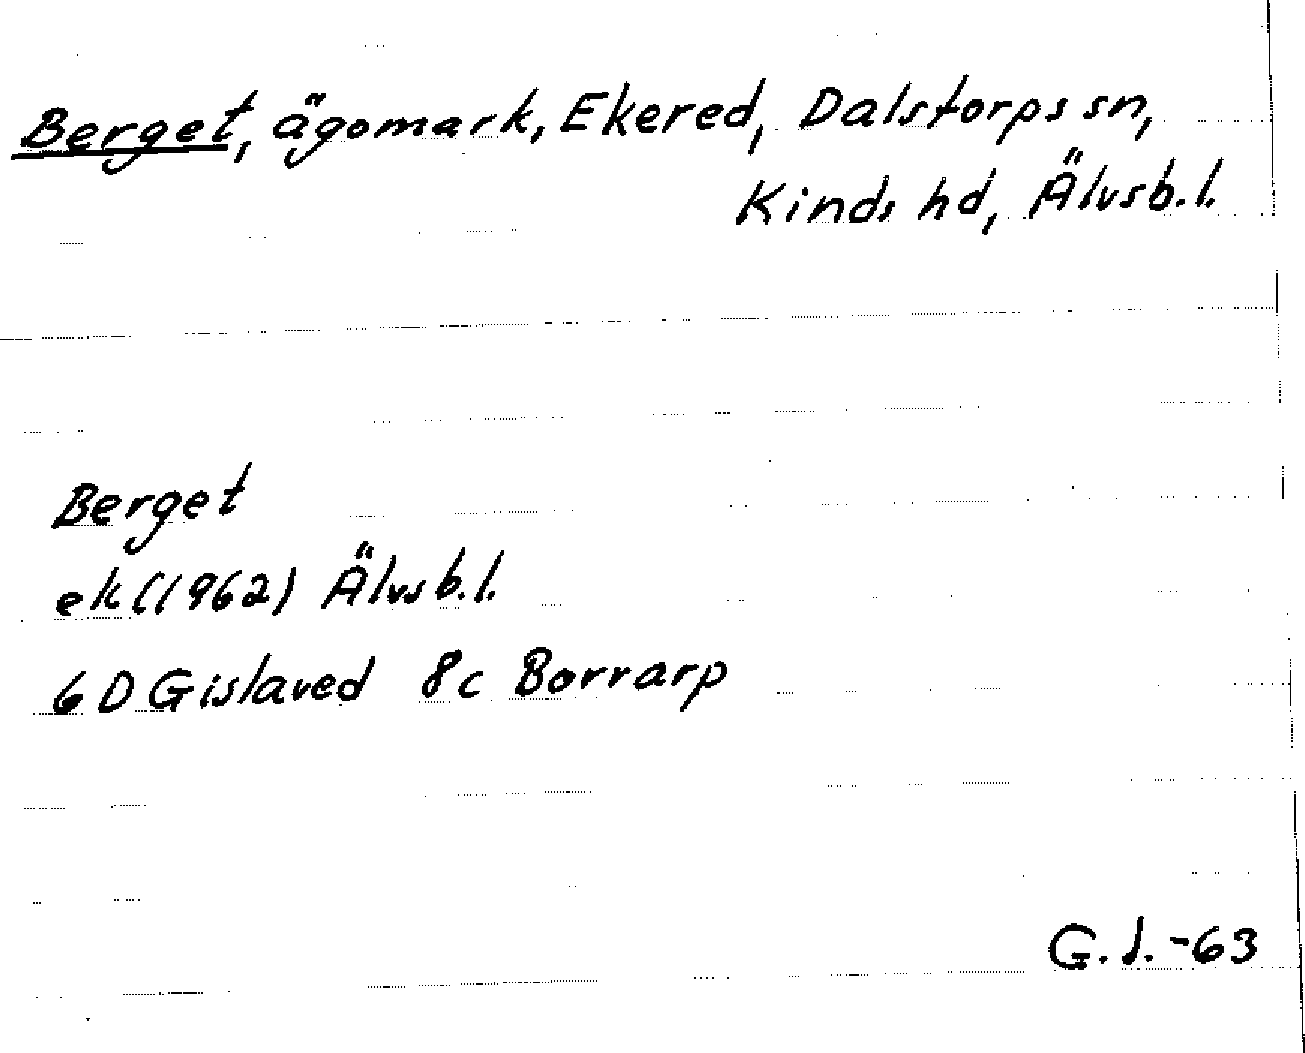 Berget, ägomark, Ekered, Dalstorps sn,
Kinds hd, Älvsb.l.
Berget
ek (1962) Älvsb.l.
6D Gislaved 8c Borrarp
G.J.-63